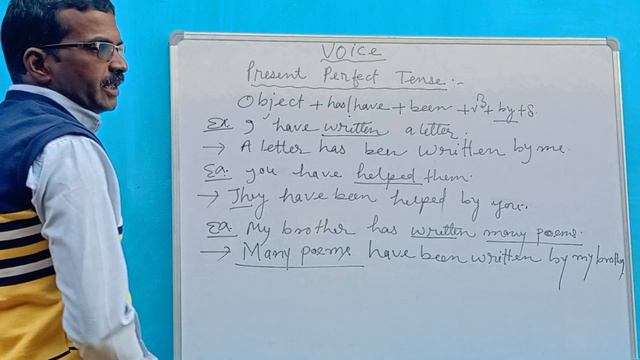 Voice
Present Perfect Tense:-
Object + has/have + been + √3 + by + S.
Ex. I have written a letter.
→ A letter has been written by me.
Ex. you have helped them.
→ They have been helped by you.
Ex. My brother has written many poems.
→ Many poems have been written by my brother